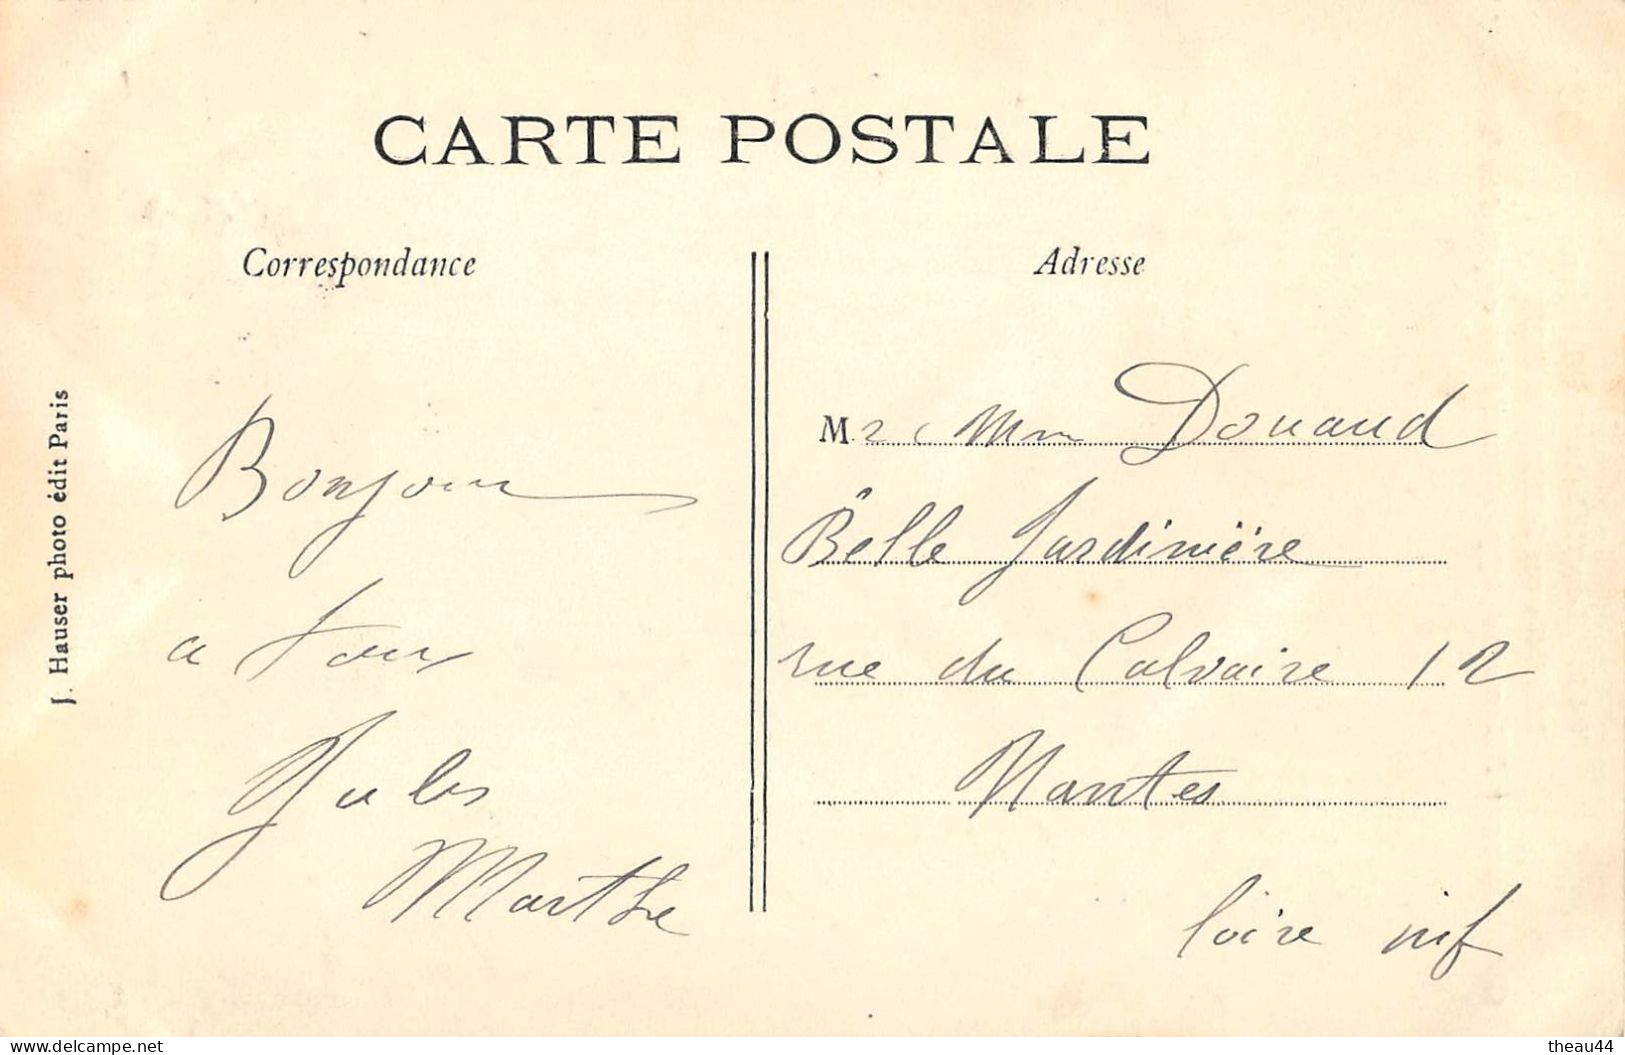 CARTE POSTALE
Correspondance
Adresse
J. Hauser photo édit Paris
Bonjour
a tous
Jules
Marthe
Mr Mme Douaud
Belle Jardinière
rue du Calvaire 12
Nantes
loire inf
theau44
www.delcampe.net